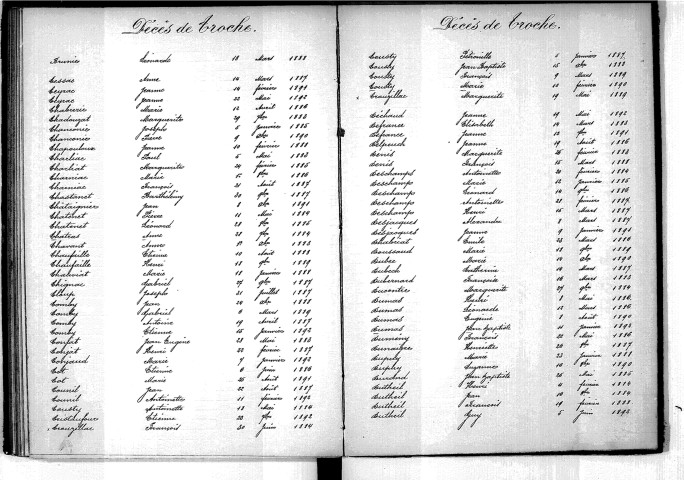 Décès de Troche.
Brunie Léonarde 18 Mars 1888
Cessac Anne 14 Mars 1889
Ceyrac Jeanne 14 février 1891
Ceyrac Jeanne 22 Mai 1892
Chabrerie Marie 12 Avril 1886
Chadougat Marguerite 29 1883
Chansonie Joseph 5 janvier 1885
Chansonie Pierre 9 1890
Chapoulour Jeanne 10 février 1888
Charliac Paul 5 Mai 1883
Charliat Marguerite 20 février 1885
Charniac Marie 15 1886
Charniac François 21 Août 1887
Chastanet Barthélémy 30 1887
Châtaignier Jean 8 1891
Chatenet Pierre 11 Mai 1884
Chatenet Léonard 28 1885
Chatras Anne 28 1884
Chavant Anne 1883
Chauffaille Etienne 10 Août 1888
Chauffaille Henri 11 1889
Chabriat Marie 18 janvier 1888
Chignac Gabriel 24 1887
Cloup Joseph 31 juillet 1887
Comby Jean 24 1888
Comby Gabriel 6 Mars 1889
Comby Antoine 19 Avril 1887
Comby Etienne 16 janvier 1892
Coufat Jean Eugène 28 Mai 1883
Coujat Henri 22 février 1887
Coujaud Marie 9 janvier 1892
Cot Etienne 6 juin 1886
Cot Marie 26 Août 1891
Counil Jean 22 Août 1887
Counil Antoinette 11 février 1892
Cousty Antoinette 18 Mai 1884
Coudeyfour Etienne 20 1892
Crouzillac François 30 juin 1884
Décès de Troche.
Cousty Pétronille 5 janvier 1887
Cousty Jean Baptiste 15 1888
Cousty François 9 Mars 1889
Cousty Marie 18 février 1890
Crouzillac Marguerite 19 Mai 1889
Dechaud Jeanne 19 Mai 1892
Defrance Elisabeth 21 Mars 1883
Defrance Jeanne 12 1891
Delpeuch Jeanne 19 Août 1886
Denis Marguerite 26 février 1888
Denis François 15 Mars 1888
Deschamps Antoinette 20 février 1884
Deschamps Marie 12 janvier 1885
Deschamps Léonard 14 1886
Deschamps Antoinette 21 février 1887
Deschamps Henri 15 Mars 1887
Desjacques Alexandre 8 Mars 1887
Desjacques Jeanne 9 janvier 1891
Dhabriat Emile 23 Mars 1886
Doussaud Marie 18 1889
Dubec Marie 14 1890
Dubech Catherine 18 Mars 1887
Dubernard Françoise 18 Mars 1883
Ducontre Marguerite 27 1884
Dumas Henri 8 Mai 1886
Dumas Léonarde 12 Mars 1886
Dumas Eugène 8 Août 1890
Dumas Jean Baptiste 11 janvier 1892
Dumény François 22 Mai 1886
Henriette 24 1887
Dupuy Marie 23 janvier 1888
Dupuy Suzanne 10 1890
Jean Baptiste 25 Mai 1885
Dutheil Henri 4 février 1886
Dutheil Jean 10 1884
Dutheil François 19 février 1888
Dutheil Guy 5 Juin 1892